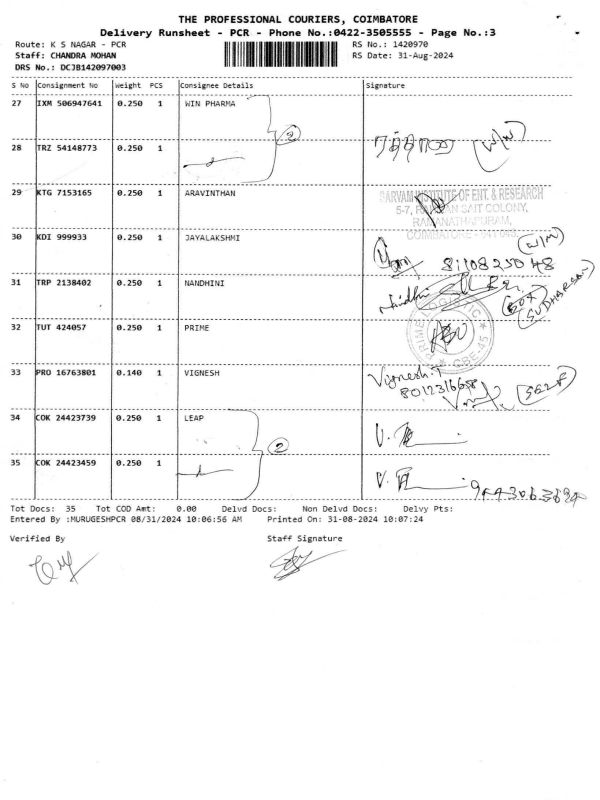 THE PROFESSIONAL COURIERS, COIMBATORE
Delivery Runsheet - PCR - Phone No.:0422-3505555 - Page No.:3
Route: K S NAGAR - PCR RS No.: 1420970
Staff: CHANDRA MOHAN RS Date: 31-Aug-2024
DRS No.: DCJB142097003
S No Consignment No Weight PCS Consignee Details Signature
27 IXM 506947641 0.250 1 WIN PHARMA
2
28 TRZ 54148773 0.250 1
29 KTG 7153165 0.250 1 ARAVINTHAN
SARVAM INSTITUTE OF ENT. & RESEARCH
SAIT COLONY,
RAMANATHAPURAM,
30 KDI 999933 0.250 1 JAYALAKSHMI
(W/M)
31 TRP 2138402 0.250 1 NANDHINI
Nandhi
SUDHARSAN
32 TUT 424057 0.250 1 PRIME
PRIME LOGISTIC
CBE-45
33 PRO 16763801 0.140 1 VIGNESH
Vignesh.T
8012316658
(SELF)
34 COK 24423739 0.250 1 LEAP
2
35 COK 24423459 0.250 1
Tot Docs: 35 Tot COD Amt: 0.00 Delvd Docs: Non Delvd Docs: Delvy Pts:
Entered By :MURUGESHPCR 08/31/2024 10:06:56 AM Printed On: 31-08-2024 10:07:24
Verified By Staff Signature